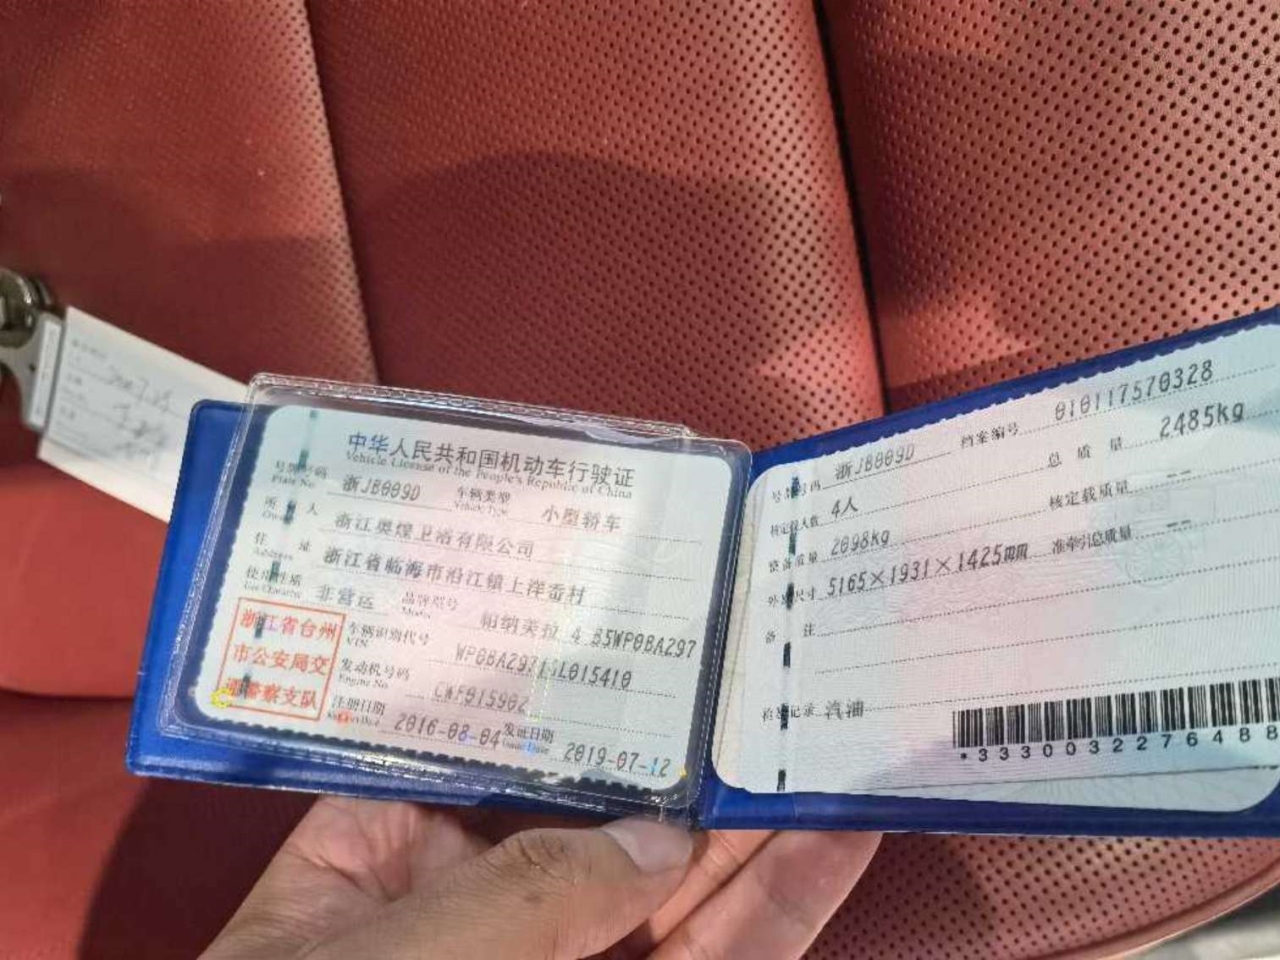 中华人民共和国机动车行驶证
Vehicle License of the People's Republic of China
号牌号码 浙JB009D 车辆类型 小型轿车
Plate No. Vehicle Type
所有人 浙江奥煌卫浴有限公司
Owner
住址 浙江省临海市沿江镇上洋岙村
Address
使用性质 非营运 品牌型号 帕纳美拉 4.8S WP0BA297
Use Character Model
浙江省台州
市公安局交
通警察支队
车辆识别代号
VIN
发动机号码 CWF015902
Engine No.
注册日期 2016-08-04 发证日期 2019-07-12
Issue Date
号牌号码 浙JB009D 档案编号 010117570328
核定载人数 4人 总质量 2485kg
整备质量 2098kg 核定载质量 --
外廓尺寸 5165×1931×1425mm 准牵引总质量 --
备注
检验记录 汽油
*3330032276488